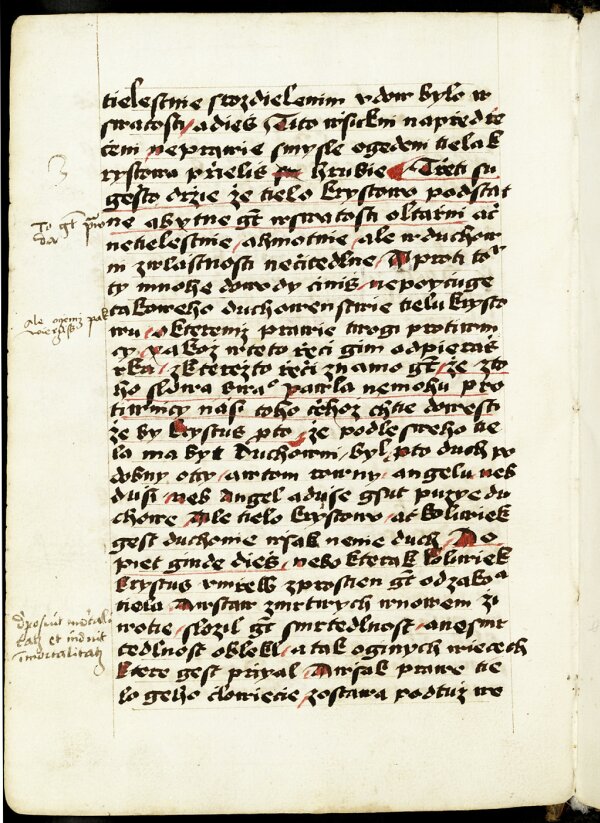 tielestnie s rozdielenim vdow bylo w
swatosti, a dieš Tito wsickni napred rže
čeni neprawie smysle o gedeni tielak
rystowa přielis hrubie Třeti su
gesto drzie že tielo Krystowo podstat
ne a bytne gt w swatosti oltarni ač
netielestnie, a hmotnie, ale w duchow
ni zwlastnosti nečitedlne, A proti to
ty mnohe dowody činiš, nepoyčuge
takoweho duchowenstwie tielu krysto
wu, o kteremž prawie twogi protiwni
cy, yakož w teto řeči gim odpieraš
rka, z kterežto řeči znamo gt, že z to
ho slowa swa° pawla nemohu pro
tiwnicy nási toho čehož chtie dowesti
že by Krystus pto, že podle sweho tie
la ma byt Duchowni, byl, pto duch po
dobny otcy, a w tom rowny, angelu, neb
dusi, neb Angel a duse gsut puzye du
chowe Ale tielo krystowo, ač koliwiek
gest duchownie wsak nenie duch, A o
piet ginde dieš, nebo kterak koliwiek
krystus vmřew zprostien gt od zako^a
tiela, A wstaw z mrtwych w nowem ži
wotie, složil gt smrtedlnost, a nesmr
tedlnost oblekl, a tak o ginych wiecech
ktere gest priyal A wsak prawe tie
lo geho človiečie, zostawa podtuž we
To gt praw
da
Ale ogeniz pak
deposuit mortali
tatem et induit
immortalitatem